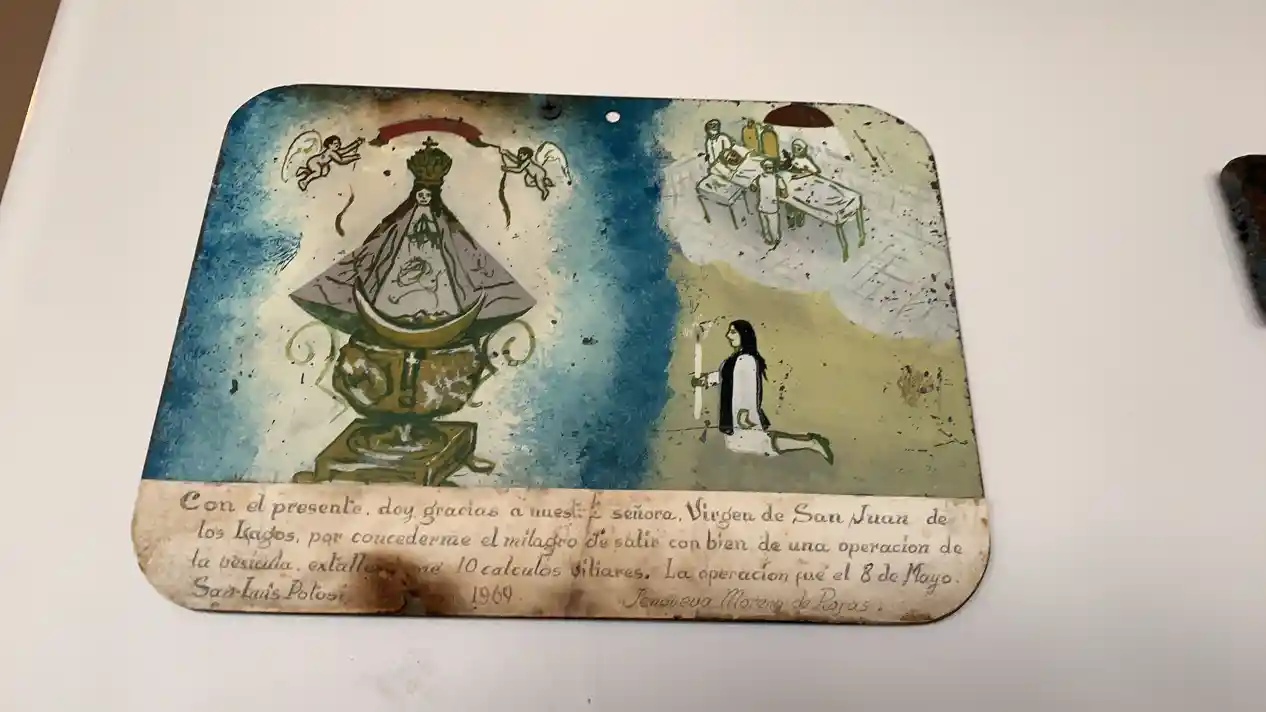 Con el presente, doy gracias a nuest señora, Virgen de San Juan de
los Lagos, por concederme el milagro de salir con bien de una operacion de
la vesicula, me 10 calculos viliares. La operacion fue el 8 de Mayo.
San Luis Potosi 1969 Jenoveva Moreno de Rojas.